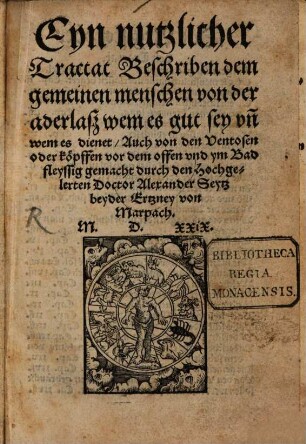 Eyn nutzlicher
Tractat Beschriben dem
gemeinen menschen von der
aderlasz wem es gut sey vñ
wem es dienet / Auch von den Ventosen
oder köpffen vor dem offen vnd ym Bad
fleyssig gemacht durch den Hochge-
lerten Doctor Alexander Seytz
beyder Ertzney von
Marpach.
M. D. XXIX.
R
BIBLIOTHECA
REGIA
MONACENSIS.